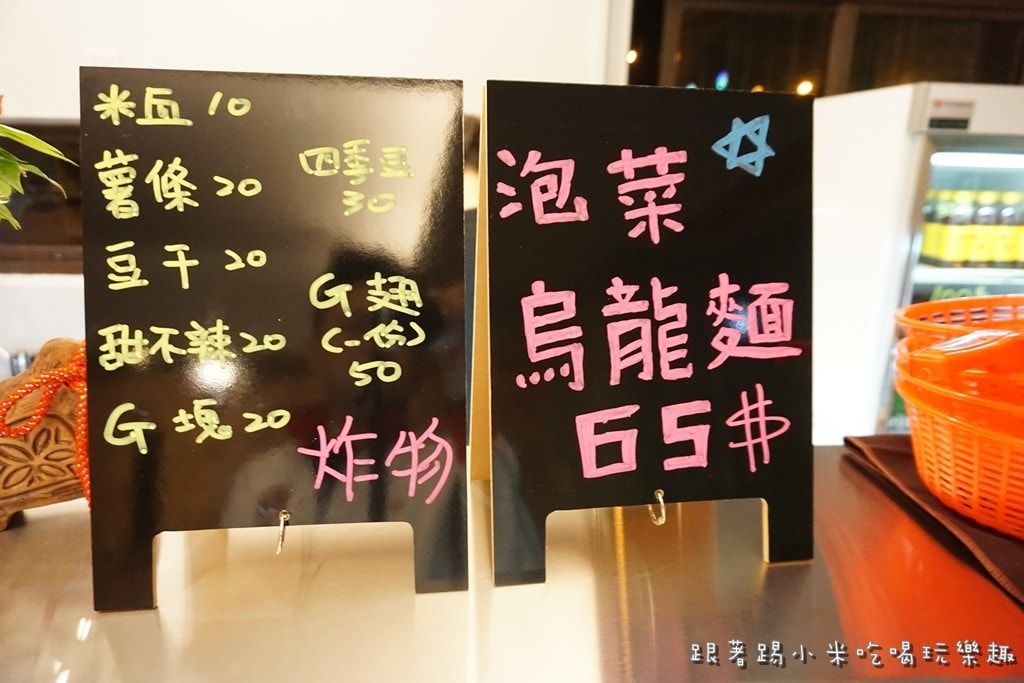 米血 10
薯條 20
豆干 20
甜不辣 20
G 塊 20
四季豆
30
G 翅
(一份)
50
炸物
泡菜
烏龍麵
65$
跟著踢小米吃喝玩樂趣